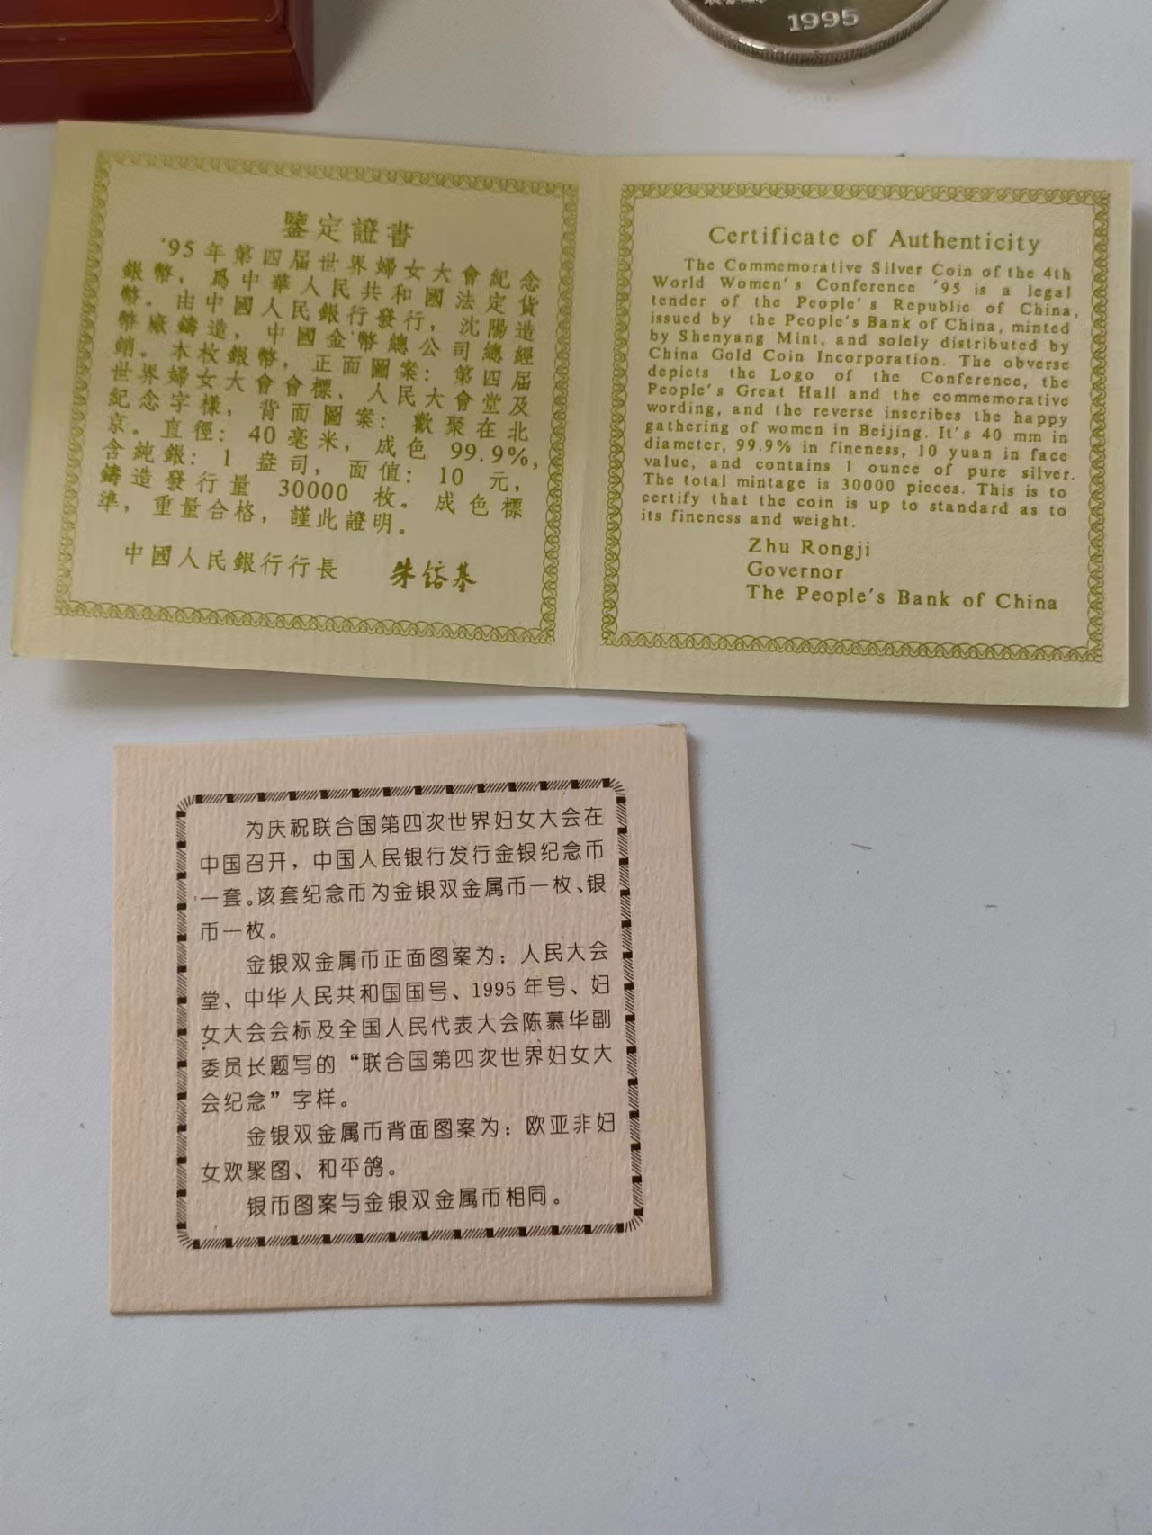 1995
鑒定證書
'95年第四届世界婦女大會紀念
銀幣，爲中華人民共和國法定貨
幣。由中國人民銀行發行，沈陽造
幣廠鑄造，中國金幣總公司總經
銷。本枚銀幣，正面圖案：第四届
世界婦女大會會標，人民大會堂及
紀念字樣，背面圖案：歡聚在北
京。直徑：40毫米，成色99.9%，
含純銀：1盎司，面值：10元，
鑄造發行量30000枚。成色標
準，重量合格，謹此證明。
中國人民銀行行長 朱鎔基
Certificate of Authenticity
The Commemorative Silver Coin of the 4th
World Women's Conference '95 is a legal
tender of the People's Republic of China,
issued by the People's Bank of China, minted
by Shenyang Mint, and solely distributed by
China Gold Coin Incorporation. The obverse
depicts the Logo of the Conference, the
People's Great Hall and the commemorative
wording, and the reverse inscribes the happy
gathering of women in Beijing. It's 40 mm in
diameter, 99.9% in fineness, 10 yuan in face
value, and contains 1 ounce of pure silver.
The total mintage is 30000 pieces. This is to
certify that the coin is up to standard as to
its fineness and weight.
Zhu Rongji
Governor
The People's Bank of China
为庆祝联合国第四次世界妇女大会在
中国召开，中国人民银行发行金银纪念币
一套。该套纪念币为金银双金属币一枚、银
币一枚。
金银双金属币正面图案为：人民大会
堂、中华人民共和国国号、1995年号、妇
女大会会标及全国人民代表大会陈慕华副
委员长题写的“联合国第四次世界妇女大
会纪念”字样。
金银双金属币背面图案为：欧亚非妇
女欢聚图、和平鸽。
银币图案与金银双金属币相同。